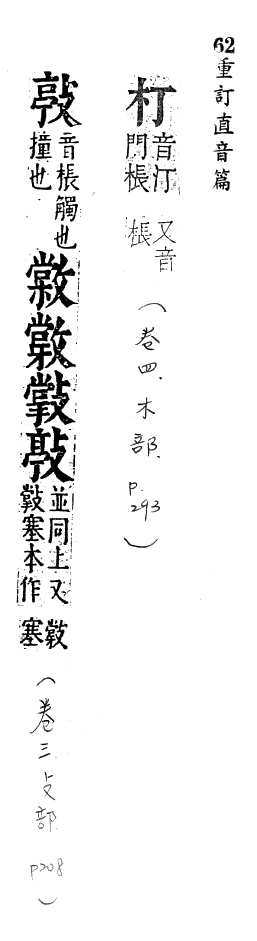 62重訂直音篇
朾
音汀又音
門棖棖
(卷四.木部.p.293)
音棖觸也
撞也
並同上又
塞本作塞
(卷三攴部p208)